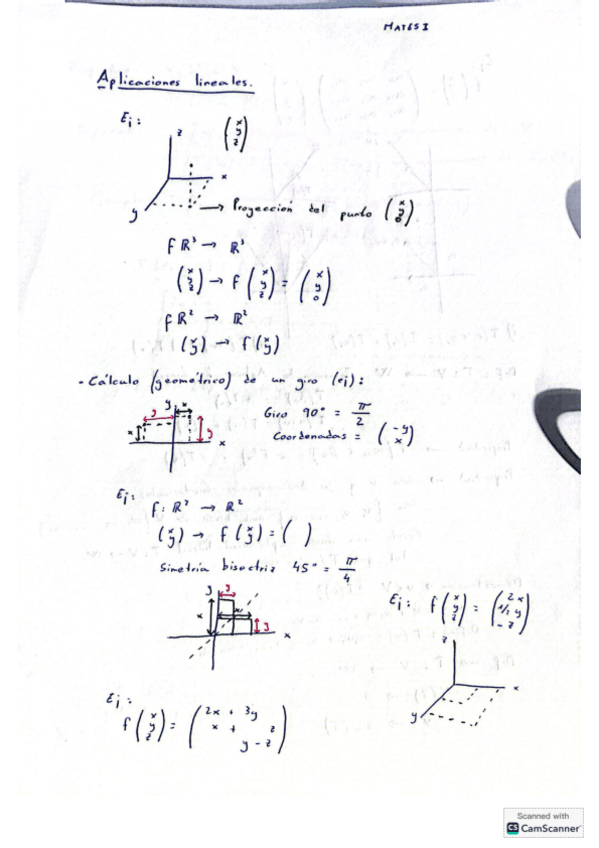 MATES I
Aplicaciones lineales.
Ej:
z
(x y z)
x
y
→ Proyección del punto (x y 0)
f ℝ³ → ℝ³
(x y z) → f (x y z) = (x y 0)
f ℝ² → ℝ²
(x y) → f (x y)
- Cálculo (geométrico) de un giro (ej):
y x
y
x
y
x
Giro 90° = π/2
Coordenadas = (-y x)
Ej:
f: ℝ² → ℝ²
(x y) → f (x y) = ( )
Simetría bisectriz 45° = π/4
y y
x
x
y
x
Ej: f (x y z) = (2x 1/2 y -z)
z
x
y
Ej:
f (x y z) = (2x + 3y x + z y - z)
Scanned with
CS CamScanner